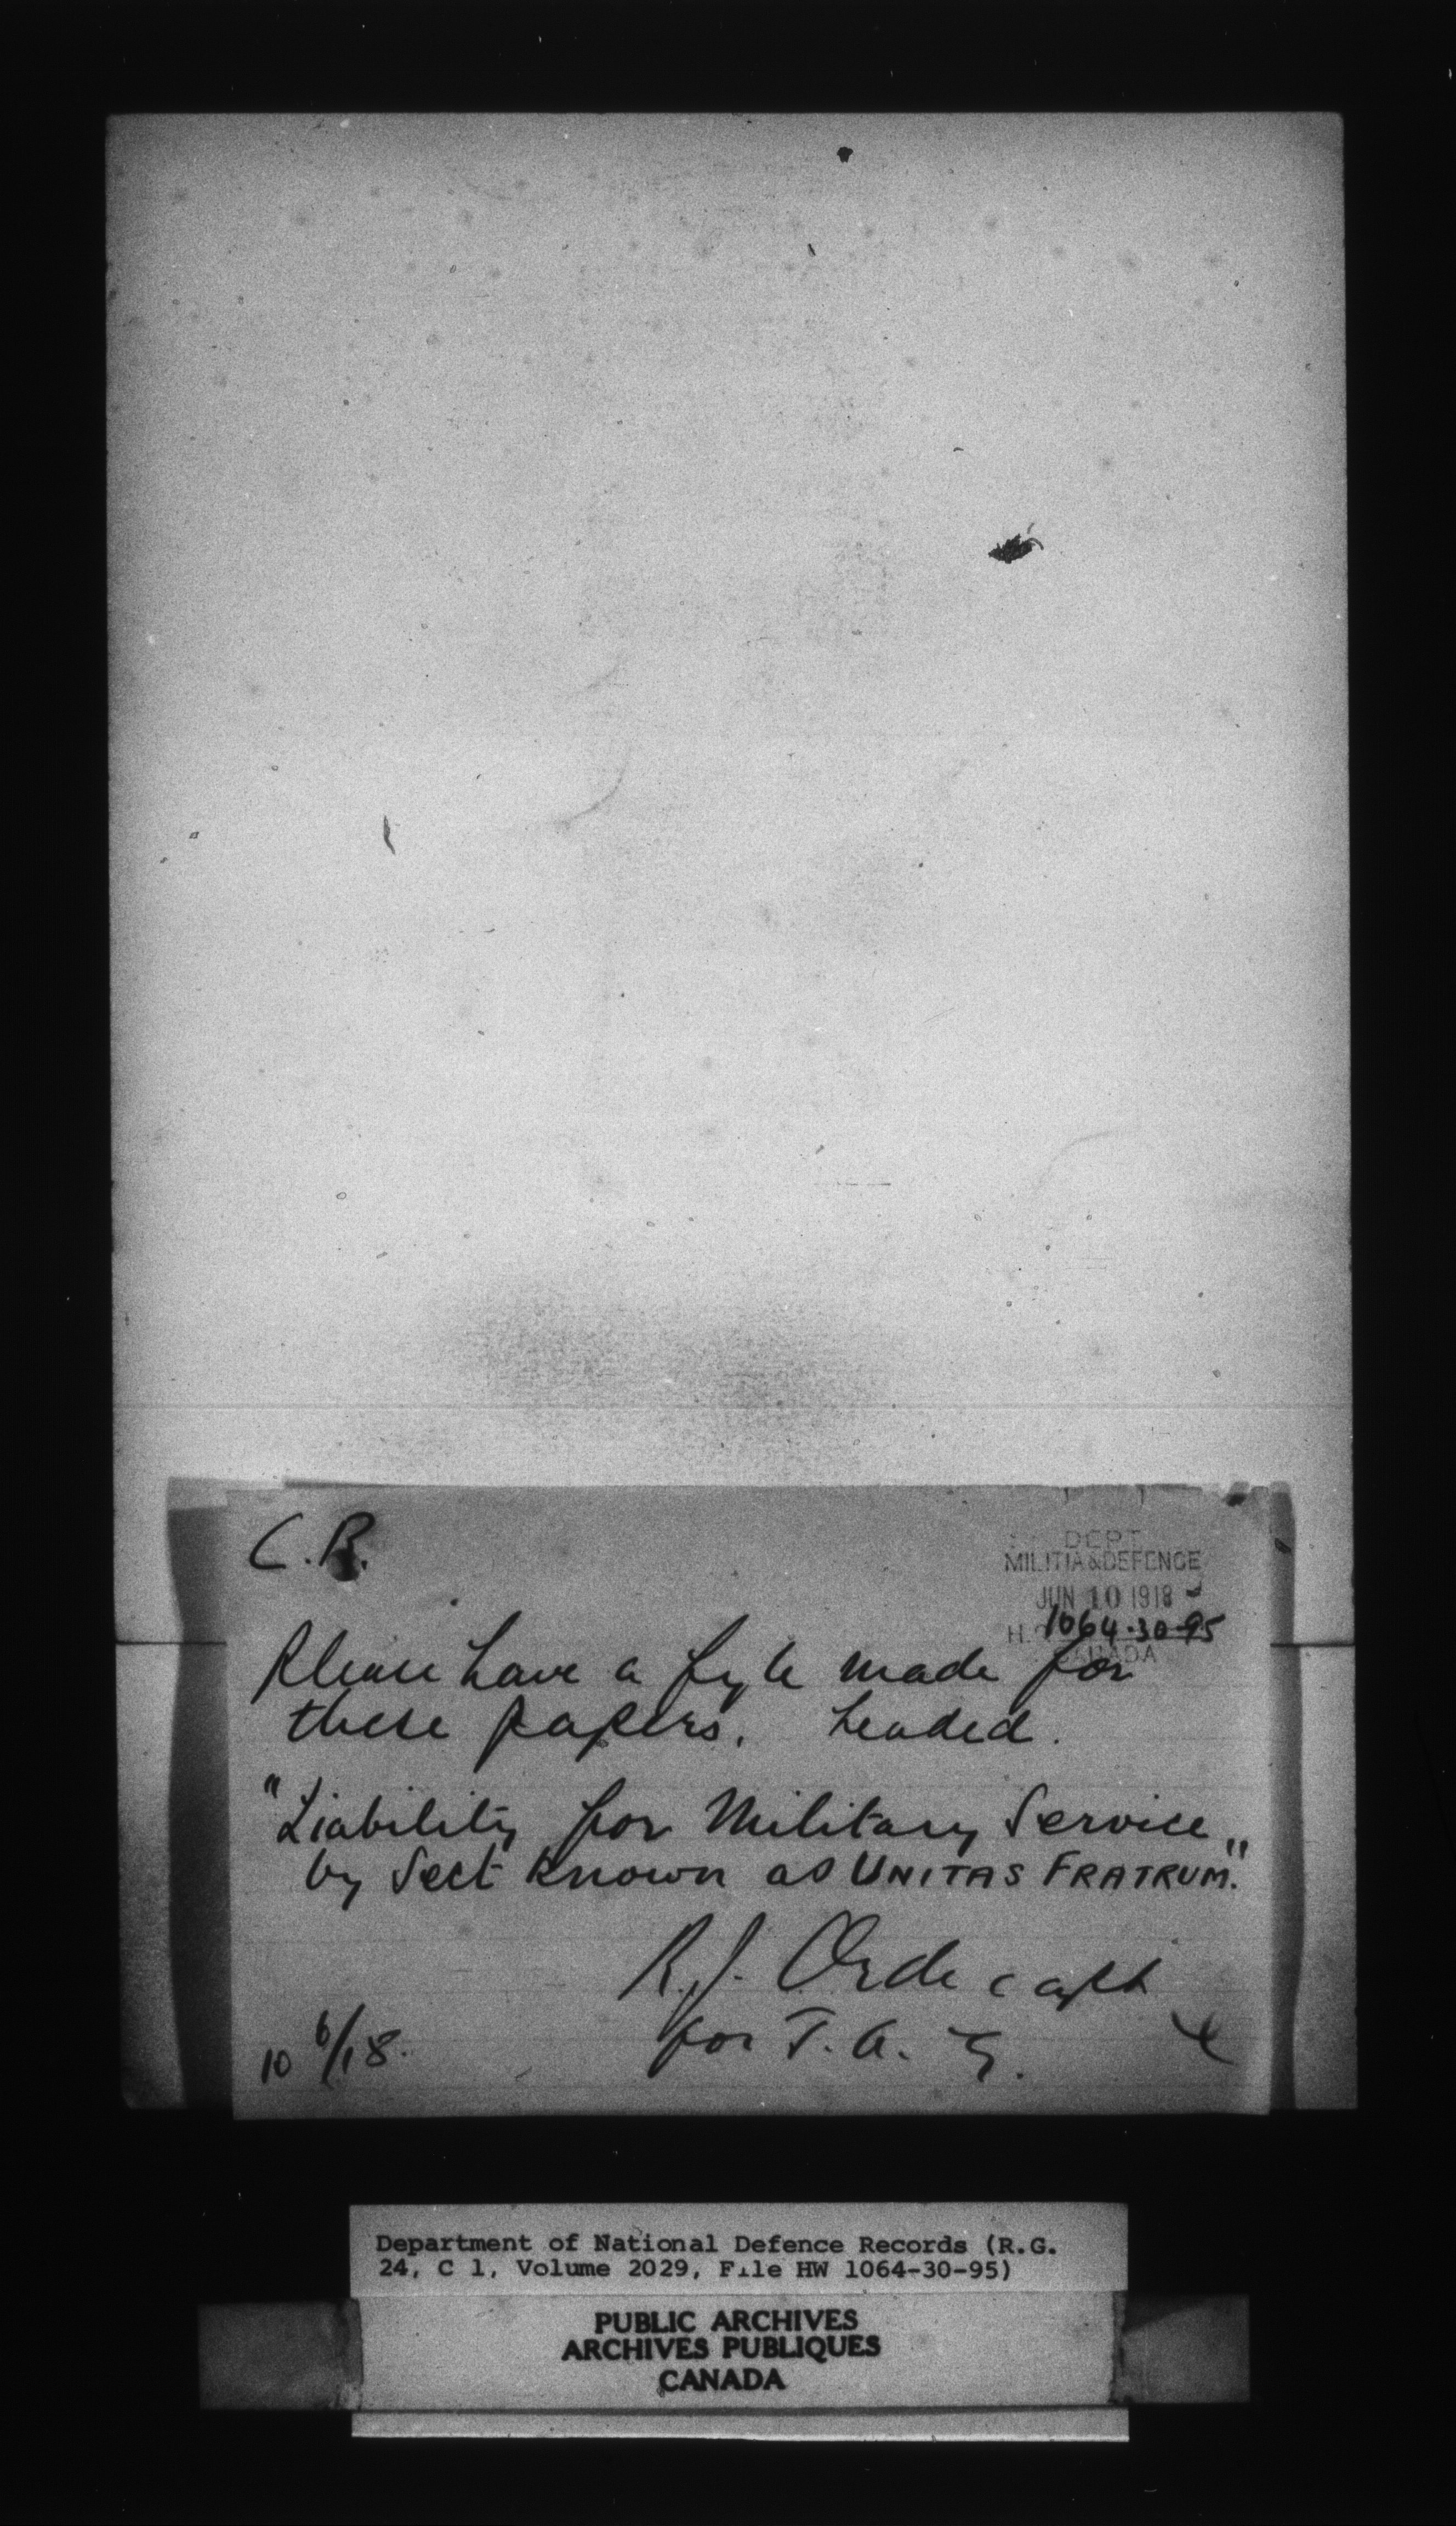 C.R.
DEPT.
MILITIA & DEFENCE
JUN 10 1918
H. 1064-30-95
CANADA
Please have a fyle made for
these papers. headed.
"Liability for Military Service
by Sect known as UNITAS FRATRUM."
R.J. Orde Capt
for J.A.G.
10 6/18.
Department of National Defence Records (R.G.
24, C 1, Volume 2029, File HW 1064-30-95)
PUBLIC ARCHIVES
ARCHIVES PUBLIQUES
CANADA